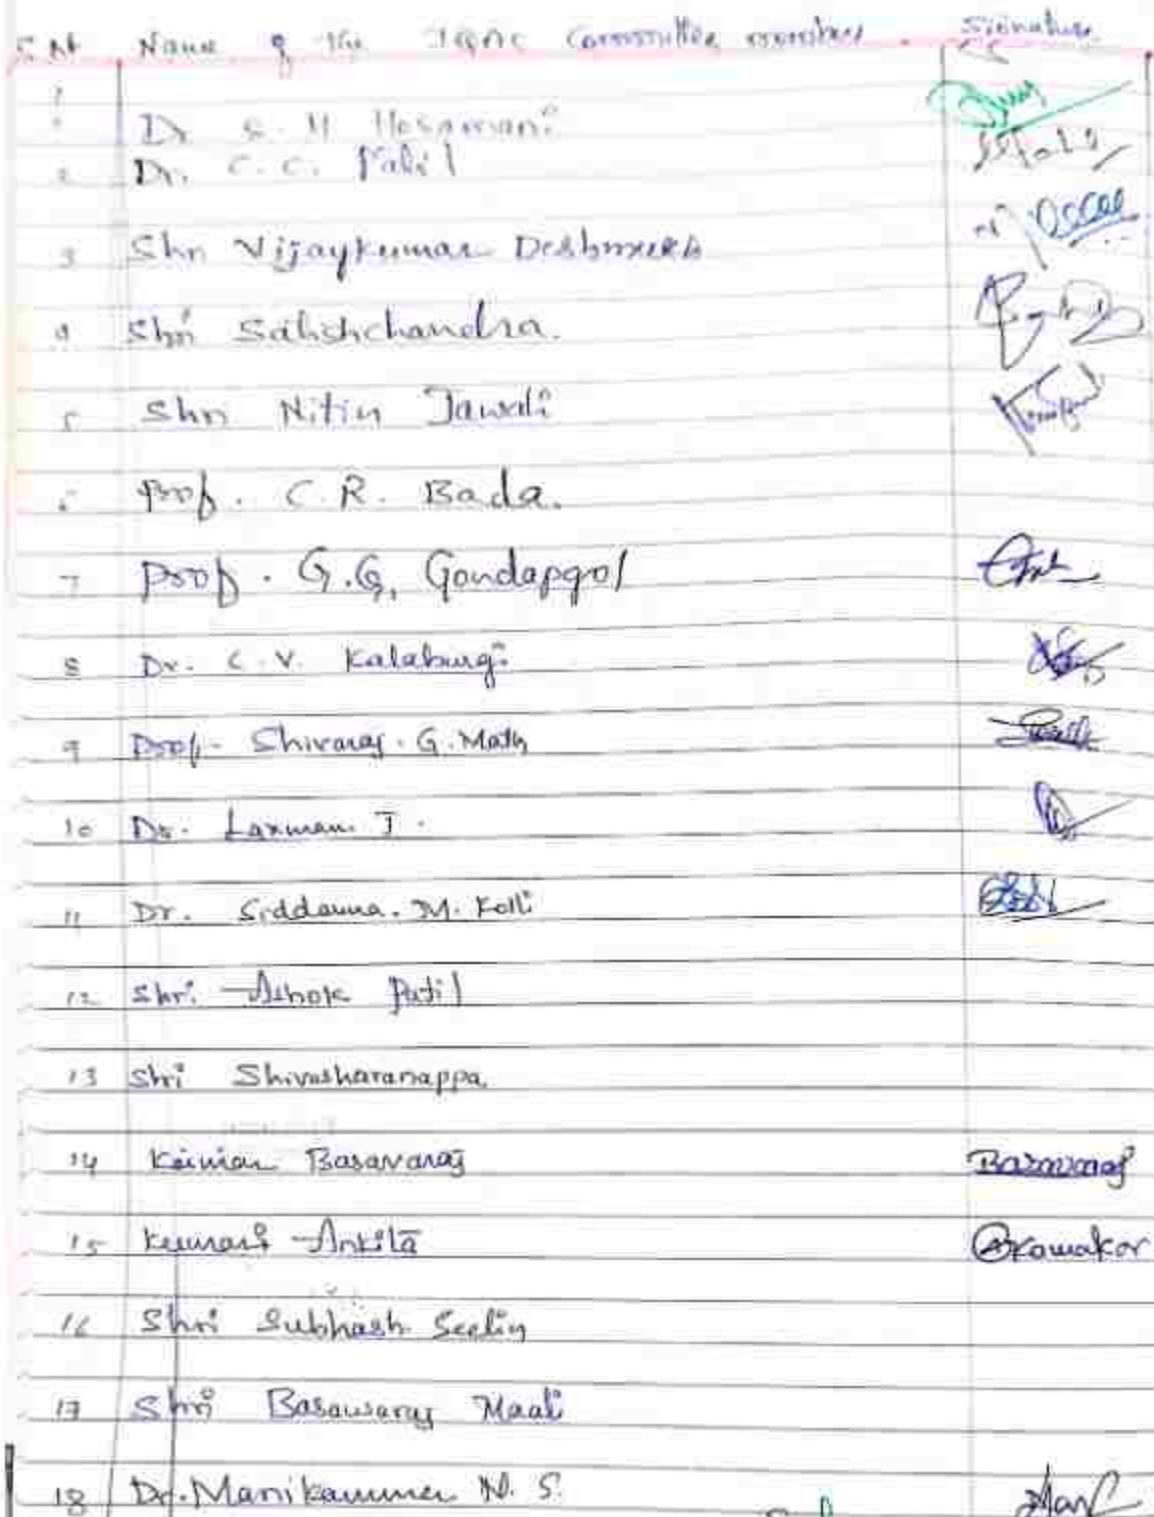 S.No Name of the IQAC Committee member. Signature
1 Dr S. H Hosamani
2 Dr. C. C. Patil
3 Shri Vijaykumar Deshmukh
4 Shri Satishchandra.
5 Shri Nitin Jawali
6 Prof. C. R. Bada.
7 Prof. G.G. Gondapgol
8 Dr. C. V. Kalaburgi
9 Prof. Shivaraj. G. Math
10 Dr. Laxman J.
11 Dr. Siddanna. M. Kolli
12 Shri. Ashok Patil
13 Shri Shivasharanappa.
14 Kumar Basavaraj Basavaraj
15 Kumari Ankita Akawakor
16 Shri Subhash
17 Shri Basawaraj Maali
18 Dr. Manikamma N. S.